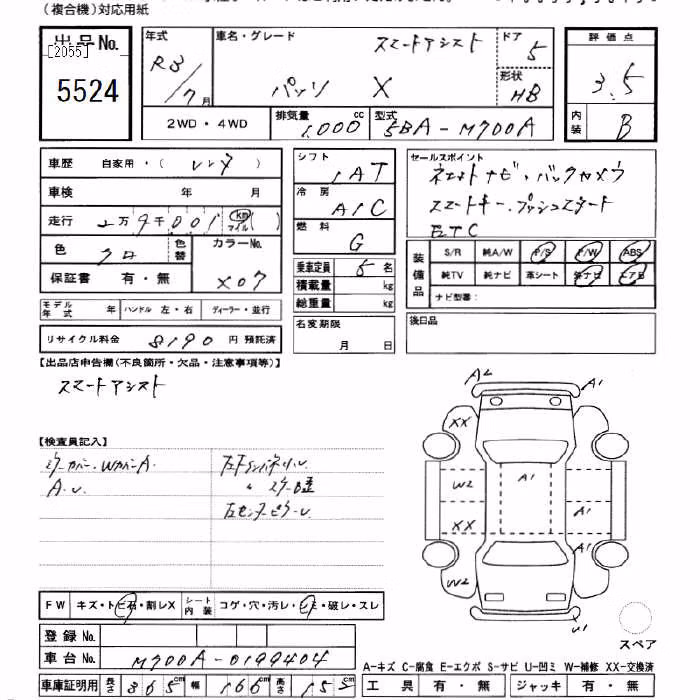 （複合機）対応用紙
出品No.
[2055]
5524
年式
R3/7月
車名・グレード
スマートアシスト
パッソ X
ドア
5
形状
HB
評価点
3.5
内装
B
2WD・4WD
排気量
1,000 cc
型式
5BA-M700A
車歴 自家用・（レンタ）
車検 年 月
走行 2万9千001 km マイル
色
クロ
色替
カラーNo.
X07
保証書 有・無
モデル年式 年 ハンドル 左・右 ディーラー・並行
リサイクル料金 8190 円 預託済
シフト
IAT
冷房
A/C
燃料
G
乗車定員 5名
積載量 kg
総重量 kg
名変期限
月 日
セールスポイント
ナビ・バックカメラ
スマートキー・プッシュスタート
ETC
装備品
S/R 純A/W P/S P/W ABS
純TV 純ナビ 革シート 外ナビ エアB
ナビ型番：
後日品
【出品店申告欄(不良箇所・欠品・注意事項等)】
スマートアシスト
【検査員記入】
ミラーカバー、Wカバー A.
A.U.
〃 ステー曲
左センターピラーU
A2
A1
XX
W2
A1
XX
A1
A1
W2
U1
スペア
FW キズ・トビ石・割レX シート内装 コゲ・穴・汚レ・シミ・破レ・スレ
登録No.
車台No. M700A-0199404
車庫証明用 長さ 365cm 幅 166cm 高さ 152cm
A-キズ C-腐食 E-エクボ S-サビ U-凹ミ W-補修 XX-交換済
工具 有・無 ジャッキ 有・無